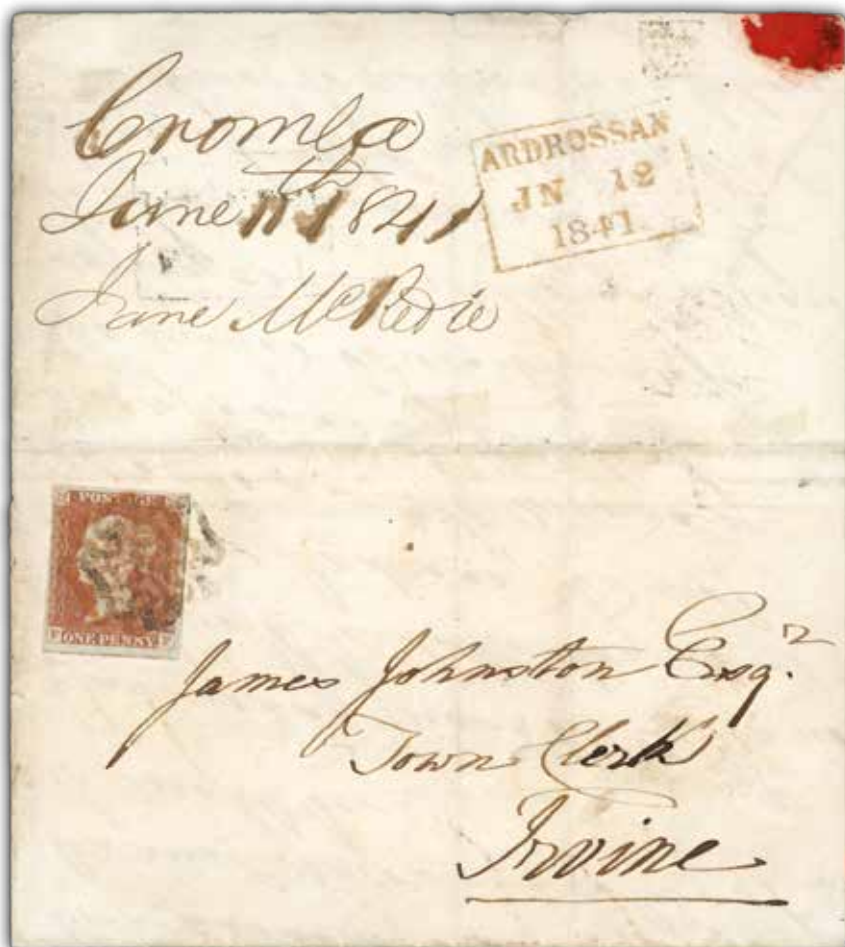 Cromla
June 11th 1841
Jane McRedie
ARDROSSAN
JN 12
1841
POSTAGE
ONE PENNY
James Johnston Esqr
Town Clerk
Irvine